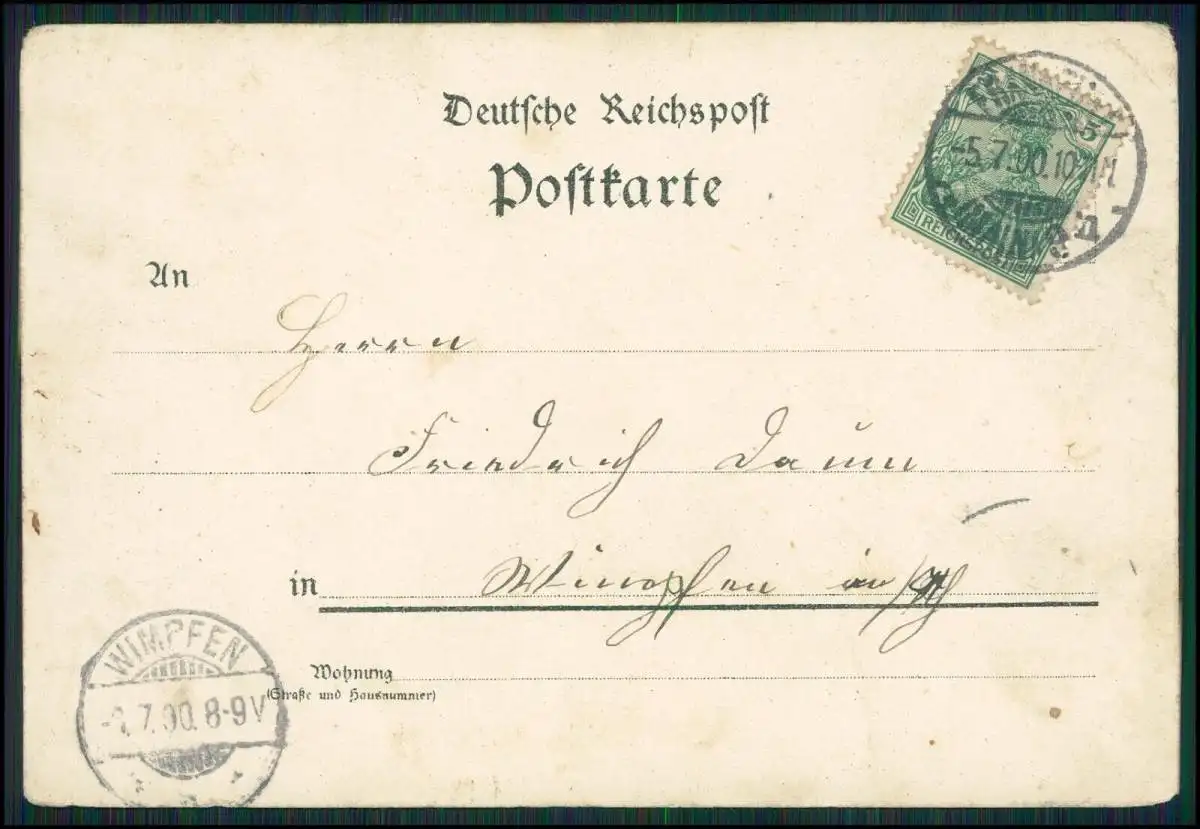 Deutsche Reichspost
Postkarte
5
5
-5.7.00.10-
REICHSPOST
An
Herrn
Friedrich Daum
in Wimpfen
Wohnung
(Straße und Hausnummer)
WIMPFEN
7.00.8-9V